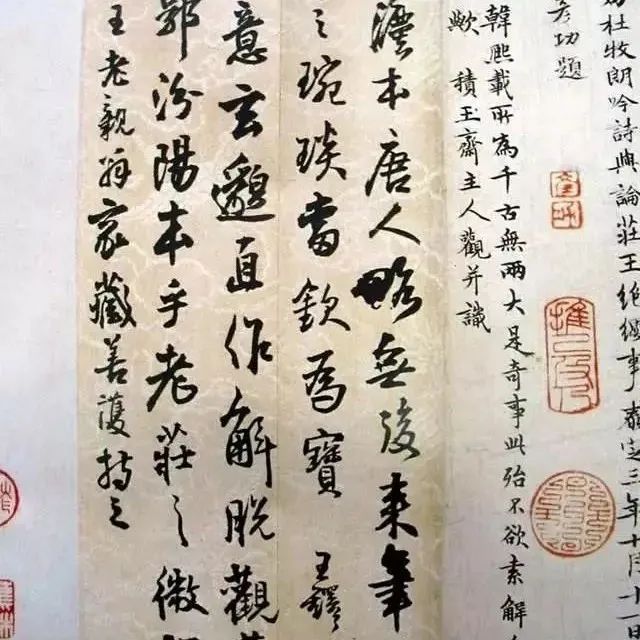 杜牧朗吟詩與論莊王絕纓事
彥功題
韓熙載所為千古無兩大是奇事此殆不欲索解
歟 積玉齋主人觀并識
灋本唐人略無後來筆
之琬琰當欽為寶 王鐸
意玄邈直作解脫觀
郭汾陽本乎老莊之微
王老親翁家藏善護持之